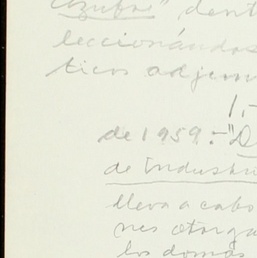 Azufre" dent
leccionándos
ticos adjun
1.-
de 1959.-"D
de Industri
lleva a cabo
nes otorga
los demás